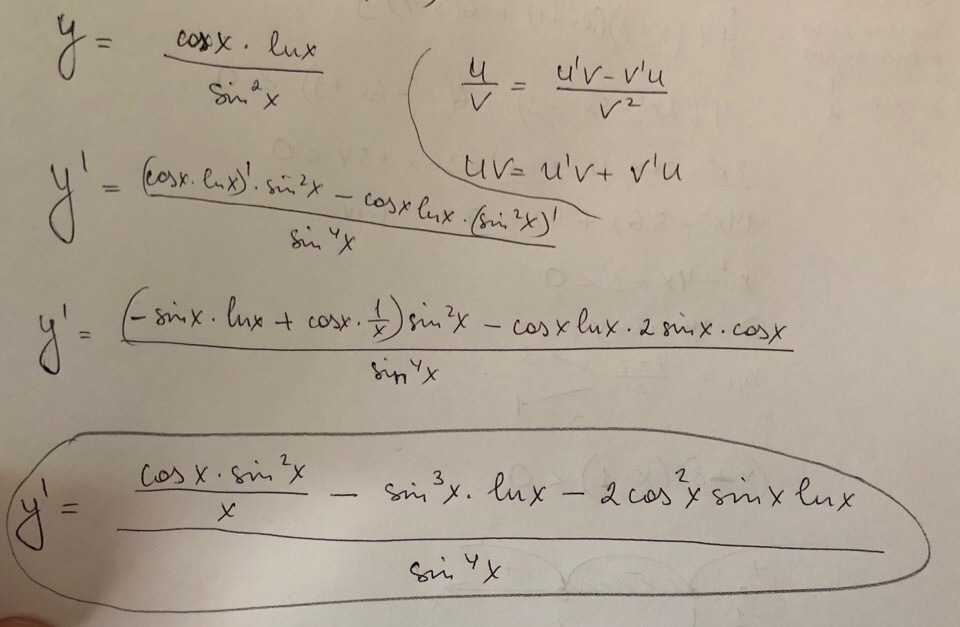 y = cosx · lnx / sin²x
u/v = u'v - v'u / v²
uv = u'v + v'u
y' = (cosx · lnx)' · sin²x - cosx lnx · (sin²x)' / sin⁴x
y' = (-sinx · lnx + cosx · 1/x) sin²x - cosx lnx · 2 sinx · cosx / sin⁴x
y' = cosx · sin²x / x - sin³x · lnx - 2cos²x sinx lnx / sin⁴x